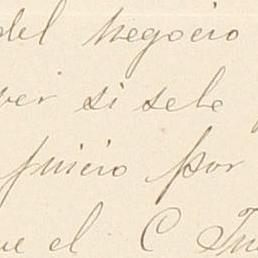 del negocio
ver si sele
juicio por
ue el C